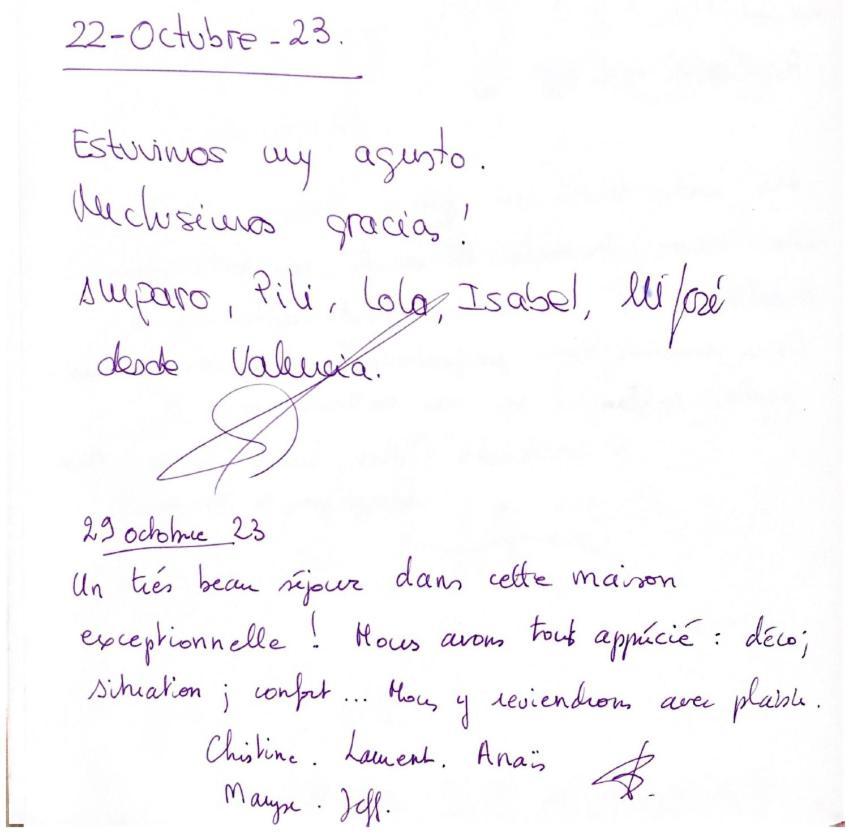 22-Octubre-23.
Estuvimos muy agusto.
Muchisimas gracias!
Amparo, Pili, Lola, Isabel, Mª José
desde Valencia.
29 octobre 23
Un très beau séjour dans cette maison
exceptionnelle ! Nous avons tout apprécié : déco;
situation ; confort ... Nous y reviendrons avec plaisir.
Christine. Laurent. Anaïs
Maryse. Jeff.